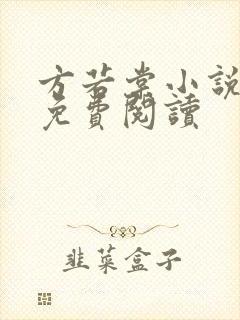 方若棠小說
免費閱讀
韭菜盒子